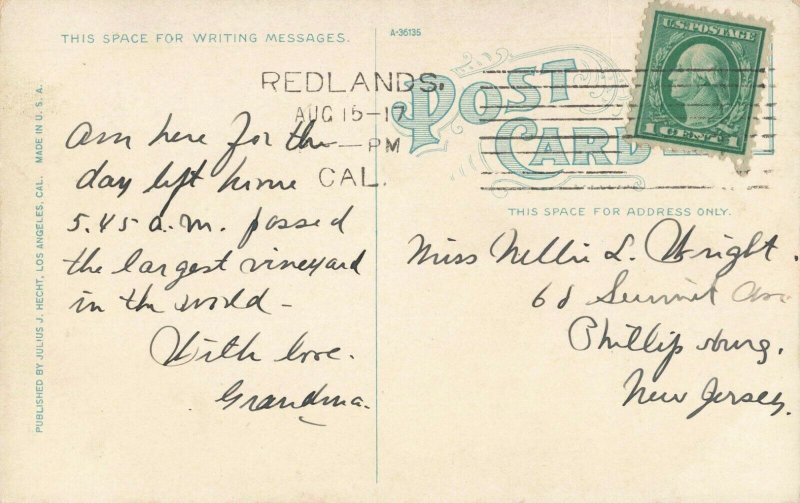 THIS SPACE FOR WRITING MESSAGES.
A-36135
U.S. POSTAGE
1 CENT 1
POST CARD
REDLANDS.
AUG 15-17
-PM
CAL.
THIS SPACE FOR ADDRESS ONLY.
PUBLISHED BY JULIUS J. HECHT, LOS ANGELES, CAL. MADE IN U.S.A.
Am here for the
day left home
5.45 a.m. passed
the largest vineyard
in the world -
With love.
Grandma.
Miss Nellie L. Wright.
68 Summit Ave
Phillipsburg.
New Jersey.